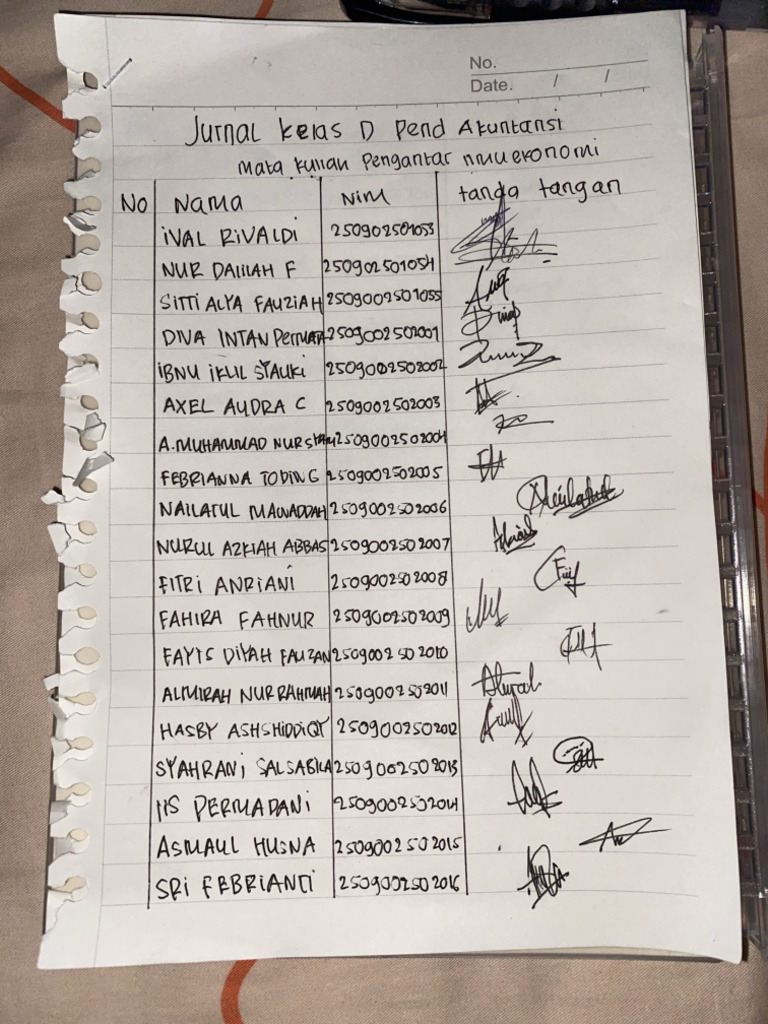 No.
Date. / /
Jurnal Kelas D Pend Akuntansi
Mata Kuliah Pengantar Ilmu ekonomi
No Nama NiM tanda tangan
iVAL RiVALDi 250902501053
NUR DALILAH F 250902501054
SITTI ALYA FAUZIAH 2509002501055
DIVA INTAN Permata 2509002502001
iBNU iKUL SYAUKi 2509002502002
AXEL AUDRA C 2509002502003
A.MUHAMMAD NUR 2509002502004
FEBRIANNA TODING 2509002502005
NAILATUL MAWADDAH 2509002502006
NURUL AZKIAH ABBAS 2509002502007
FITRI ANRIANI 2509002502008
FAHIRA FAHNUR 2509002502009
FAYIS DIYAH FAUZAN 2509002502010
ALMIRAH NUR RAHMAH 2509002502011
HASBY ASHSHIDDIQY 2509002502012
SYAHRANI SALSABILA 2509002502013
IIS PERMADANI 2509002502014
ASMAUL HUSNA 2509002502015
SRI FEBRIANTI 2509002502016